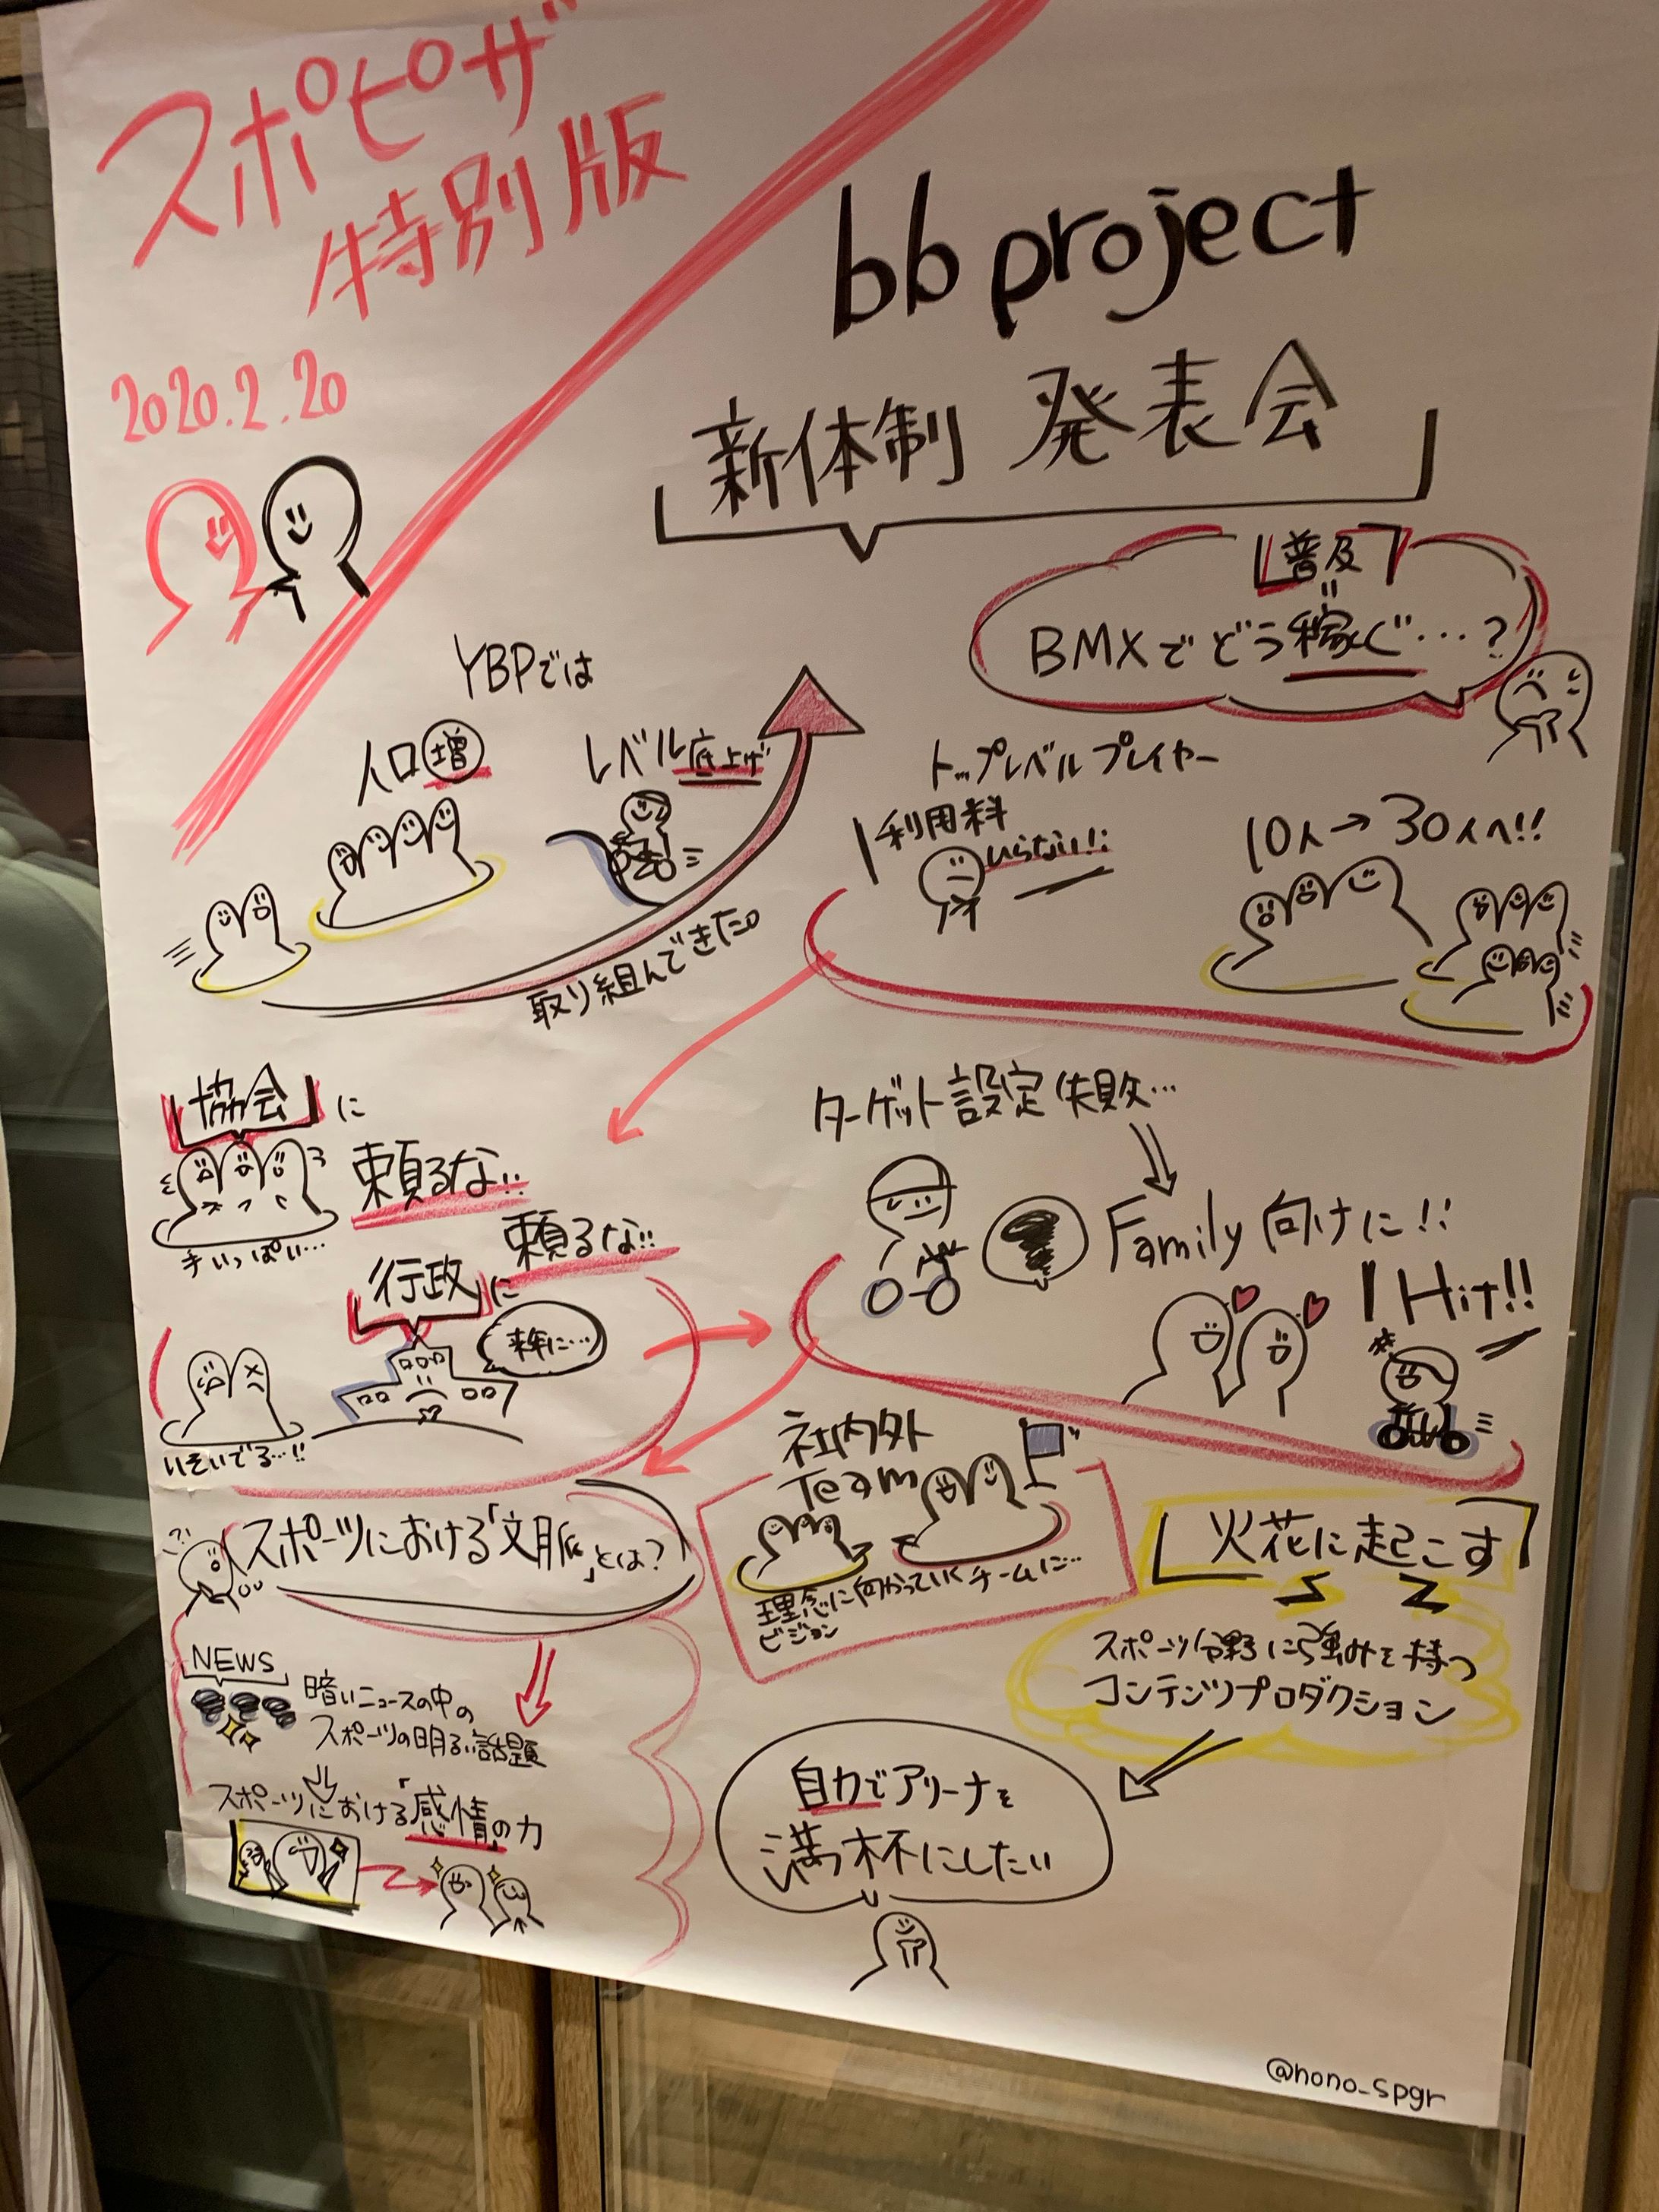 スポピザ
特別版
2020.2.20
bb project
新体制 発表会
普及
=
BMXでどう稼ぐ…?
YBPでは
人口増
レベル底上げ
取り組んできた。
トップレベルプレイヤー
利用料
いらない!!
10人→30人へ!!
協会に
頼るな!!
手いっぱい…
行政に
頼るな!!
来年に…
いそいでる…!!
ターゲット設定失敗…
Family向けに!!
Hit!!
スポーツにおける「文脈」とは?
NEWS
暗いニュースの中の
スポーツの明るい話題
スポーツにおける「感情」の力
社内外
Team
理念に向かっていくチームに…
ビジョン
火花に起こす
スポーツ分野に強みを持つ
コンテンツプロダクション
自力でアリーナを
満杯にしたい
@hono_spgr